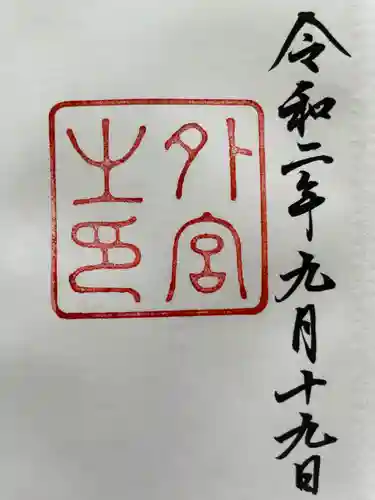 令和二年九月十九日
外宮
之印